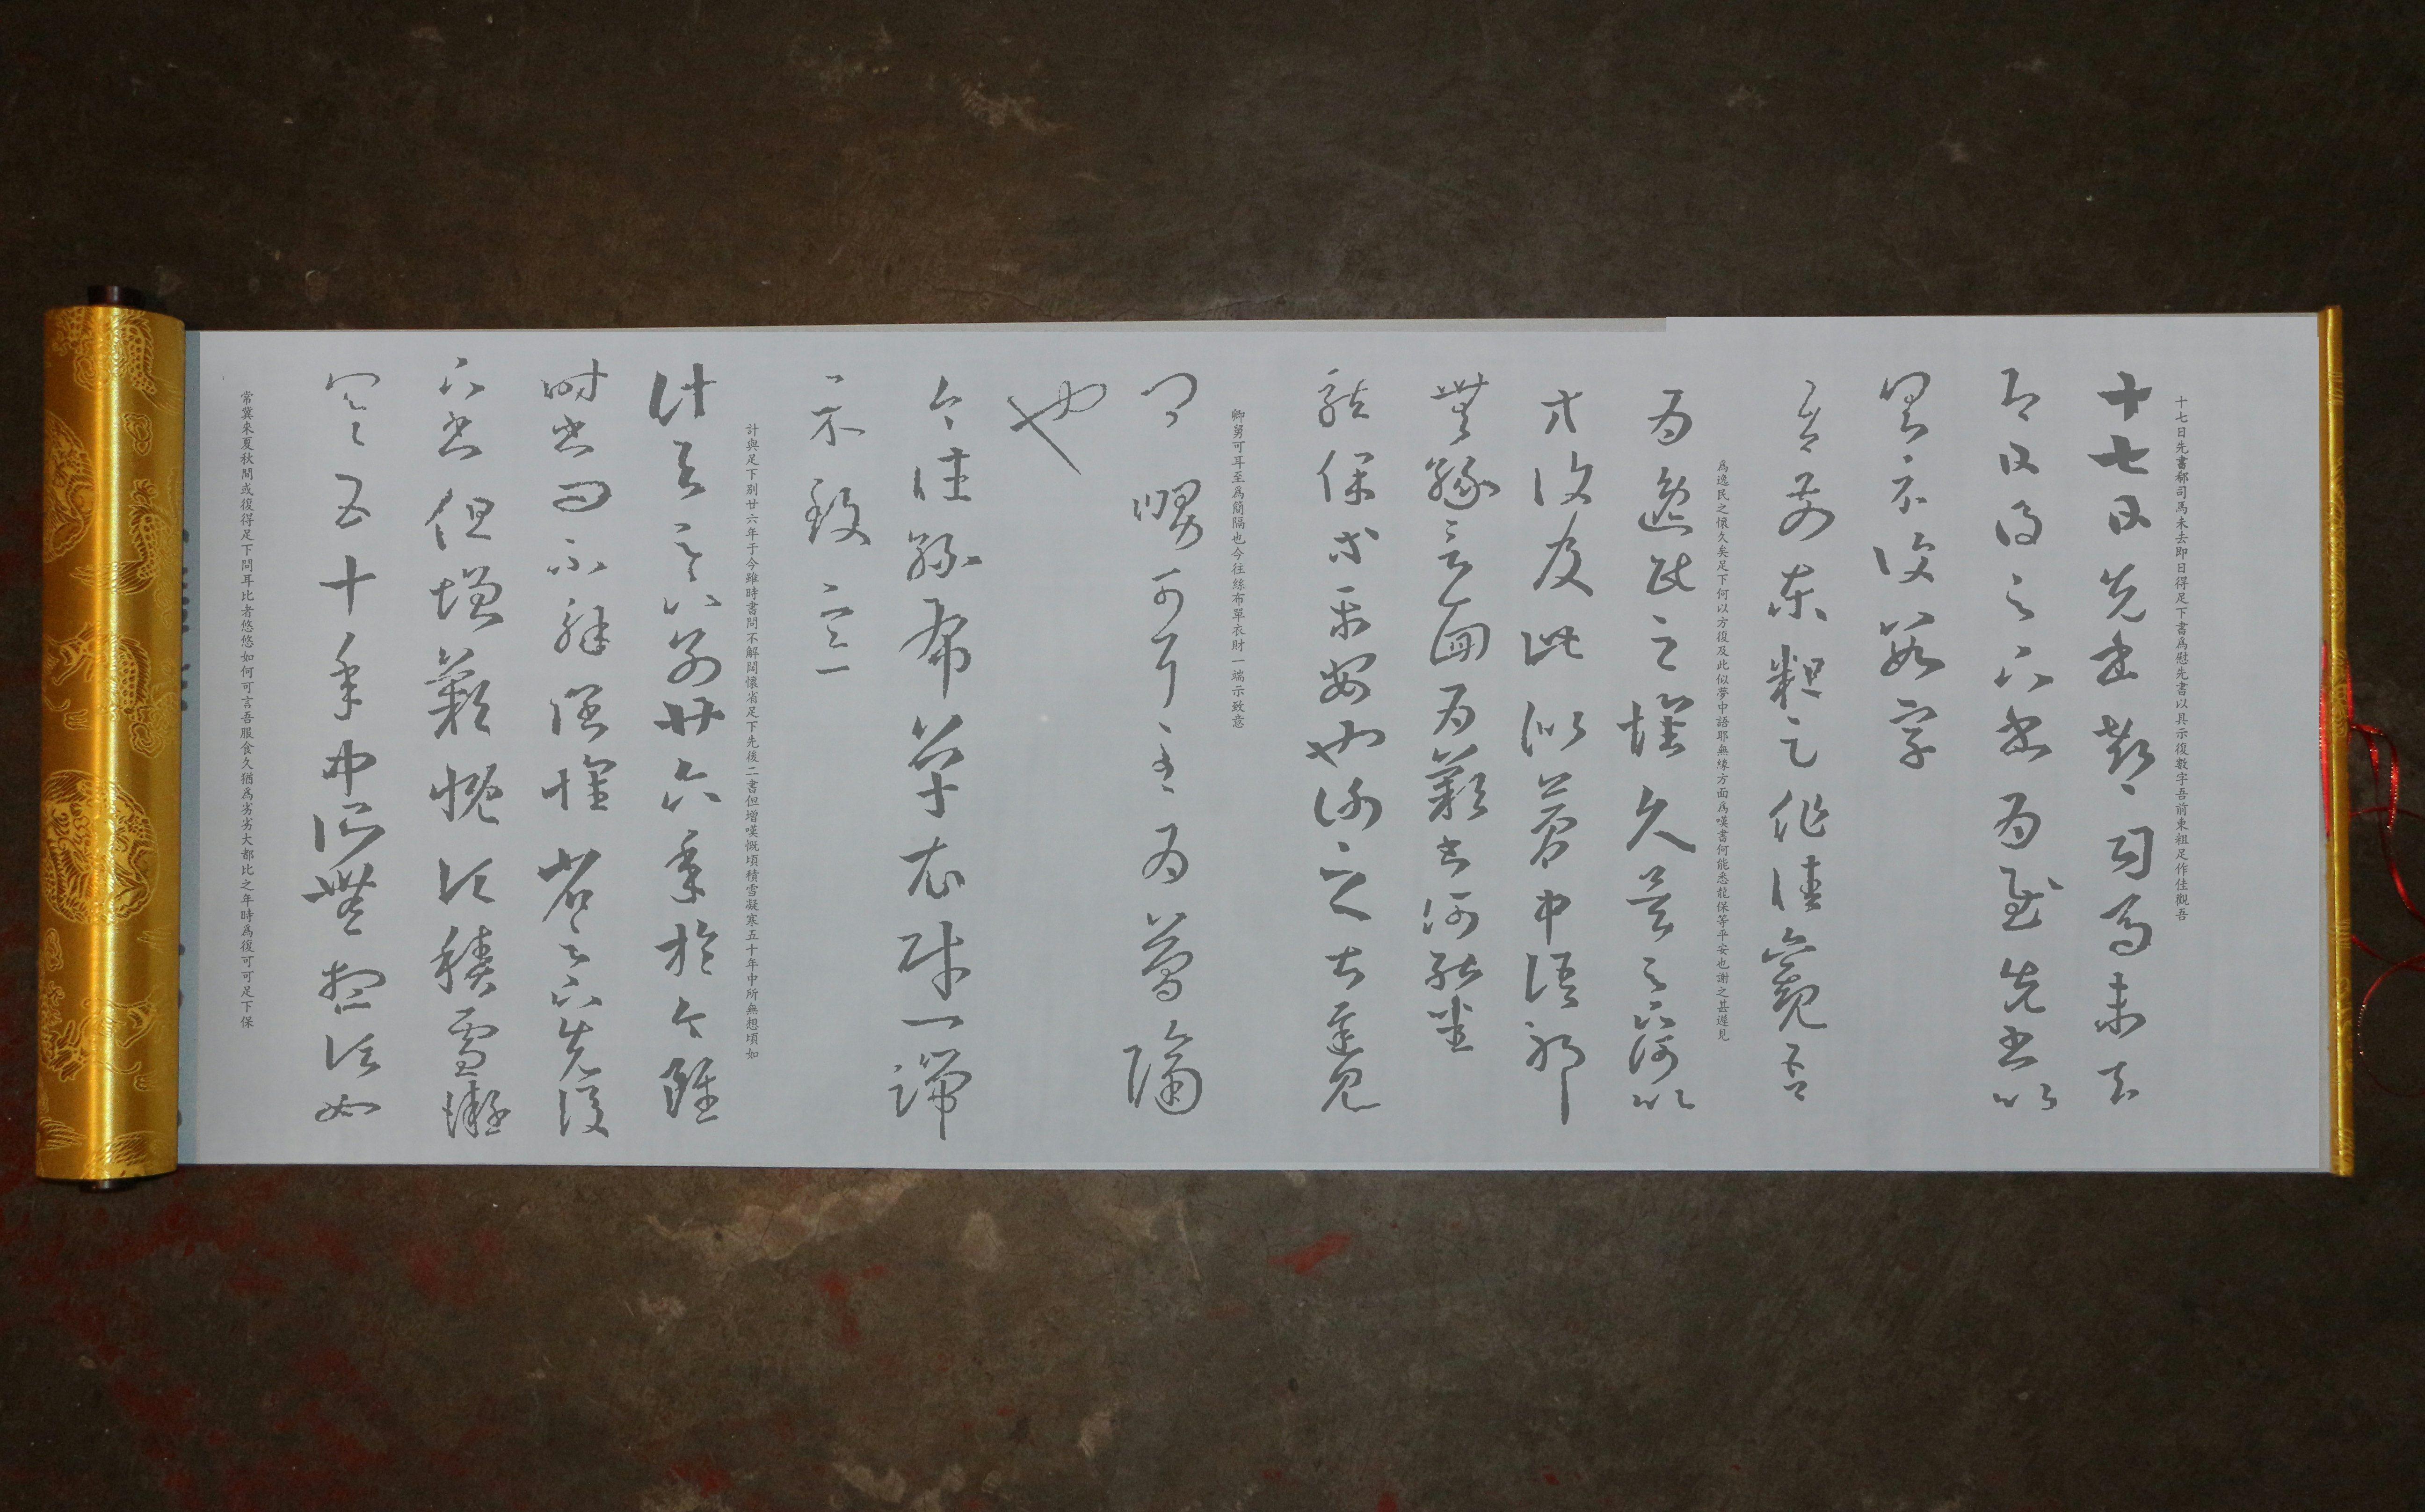 十七日先書郗司馬未去即日得足下書爲慰先書以具示復數字吾前東粗足作佳觀吾
十七日先書郗司馬未去
即日得足下書爲慰先書以
具示復數字
吾前東粗足作佳觀吾
爲逸民之懷久矣足下何以方復及此似夢中語耶無緣方面爲嘆書何能悉龍保等平安也謝之甚遲見
爲逸民之懷久矣足下何以
方復及此似夢中語耶
無緣言面爲嘆書何能悉
龍保等平安也謝之甚遲見
卿舅可耳至爲簡隔也今往絲布單衣財一端示致意
卿舅可耳至爲簡隔
也
今往絲布單衣財一端
示致意
計與足下别廿六年于今雖時書問不解闊懷省足下先後二書但增嘆慨頃積雪凝寒五十年中所無想頃如
計與足下别廿六年於今雖
時書問不解闊懷省足下先後
二書但增嘆慨頃積雪凝
寒五十年中所無想頃如
常冀來夏秋間或復得足下問耳比者悠悠如何可言吾服食久猶爲劣劣大都比之年時爲復可可足下保